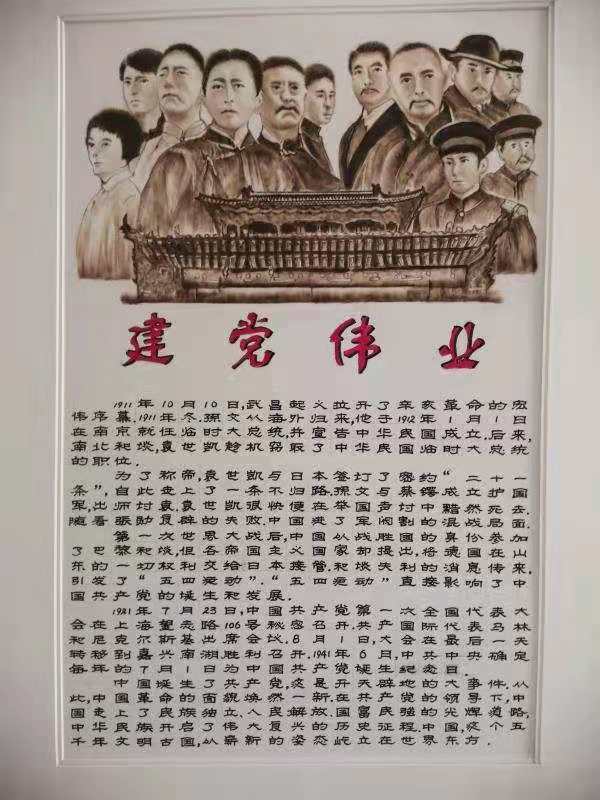 建党伟业
1911年10月10日,武昌起义拉开了辛亥革命的宏
伟序幕.1911年冬.孙文从海外归来,他于1912年1月1日
在南京就任临时大总统,并宣告中华民国成立.后来,
南北和谈,袁世凯趁机窃取了中华民国临时大总统
的职位.
为了称帝,袁世凯与日本签订了密约“二十一
条”,自此走上了一条不归路.孙文与蔡锷成立护国
军,出师讨袁.袁很快在声讨中黯然死去.
随着张勋复辟的失败,中国进入了军阀割据混战局面.
第一次世界大战后,中国战胜国的份参加
了巴黎和谈.但各帝国主义国家却提出,将德国在山
东的一切权利交给日本接管.和谈失利的消息传来,
引发了“五四运动”.“五四运动”直接影响了中
国共产党的诞生和发展.
1921年7月23日,中国共产党第一次全国代表大
会在上海望志路106号秘密召开.共产国际代表马林
和尼克尔斯基出席会议.8月1日,大会在最后一天
转移到嘉兴南湖胜利召开.1941年6月,中共中央确定
每年的7月1日为中国共产党诞生纪念日.
中国诞生了共产党,这是开天辟地的大事件.从
此,中国革命的面貌焕然一新.在共产党的领导下,中
国走上了民族独立、人民解放、国富民强的光辉道路,
中华民族开启了伟大复兴的历史征程.这个五
千年文明古国,从崭新的姿态屹立在世界东方.